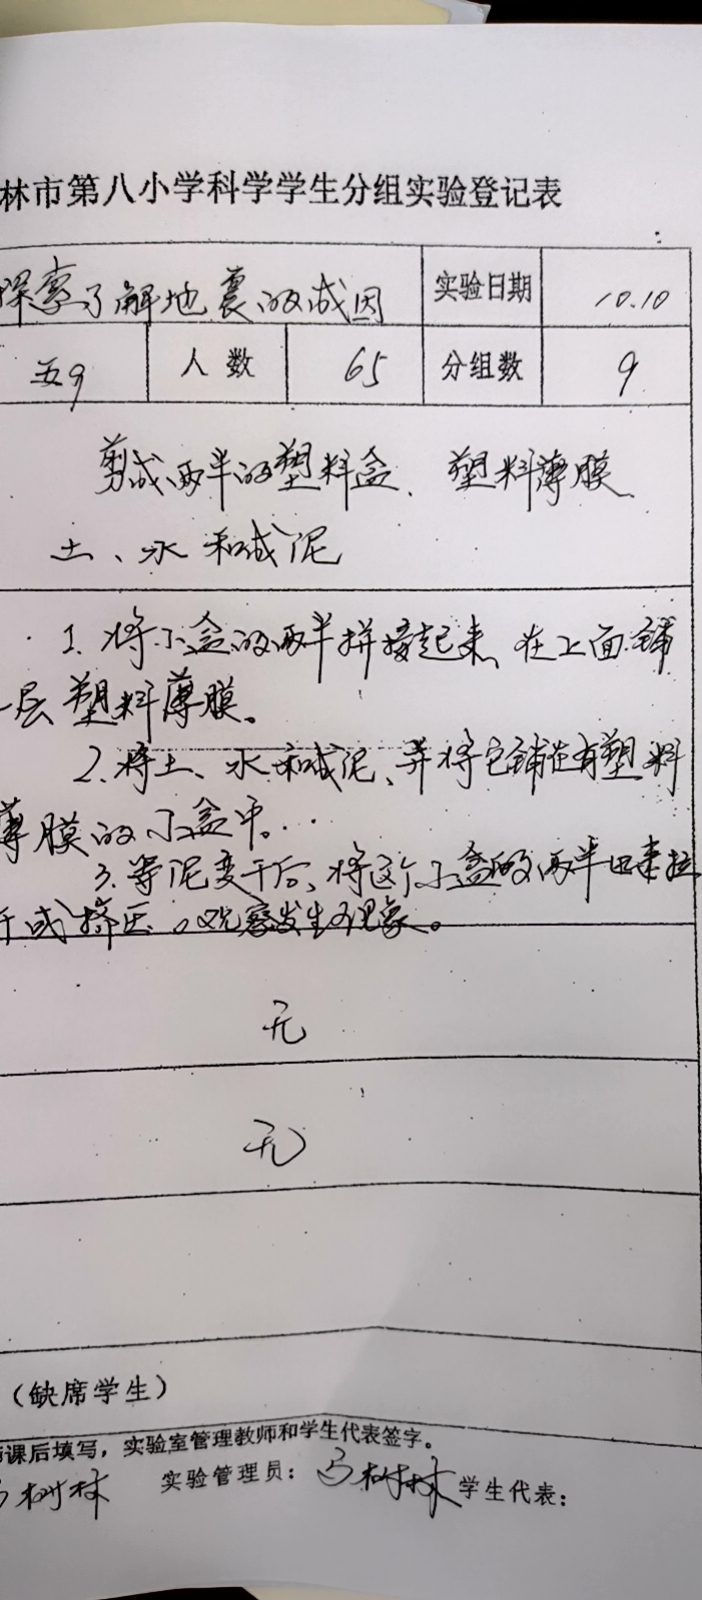 林市第八小学科学学生分组实验登记表
探索了解地震的成因 实验日期 10.10
五9 人数 65 分组数 9
剪成两半的塑料盒、塑料薄膜、
土、水和成泥
1. 将小盒的两半拼接起来、在上面铺
一层塑料薄膜。
2. 将土、水和成泥、并将它铺在有塑料
薄膜的小盒中。
3. 等泥变干后、将这个小盒的两半 拉
或挤压。观察发生的现象。
无
无
(缺席学生)
课后填写，实验室管理教师和学生代表签字。
树林 实验管理员： 马树林 学生代表：